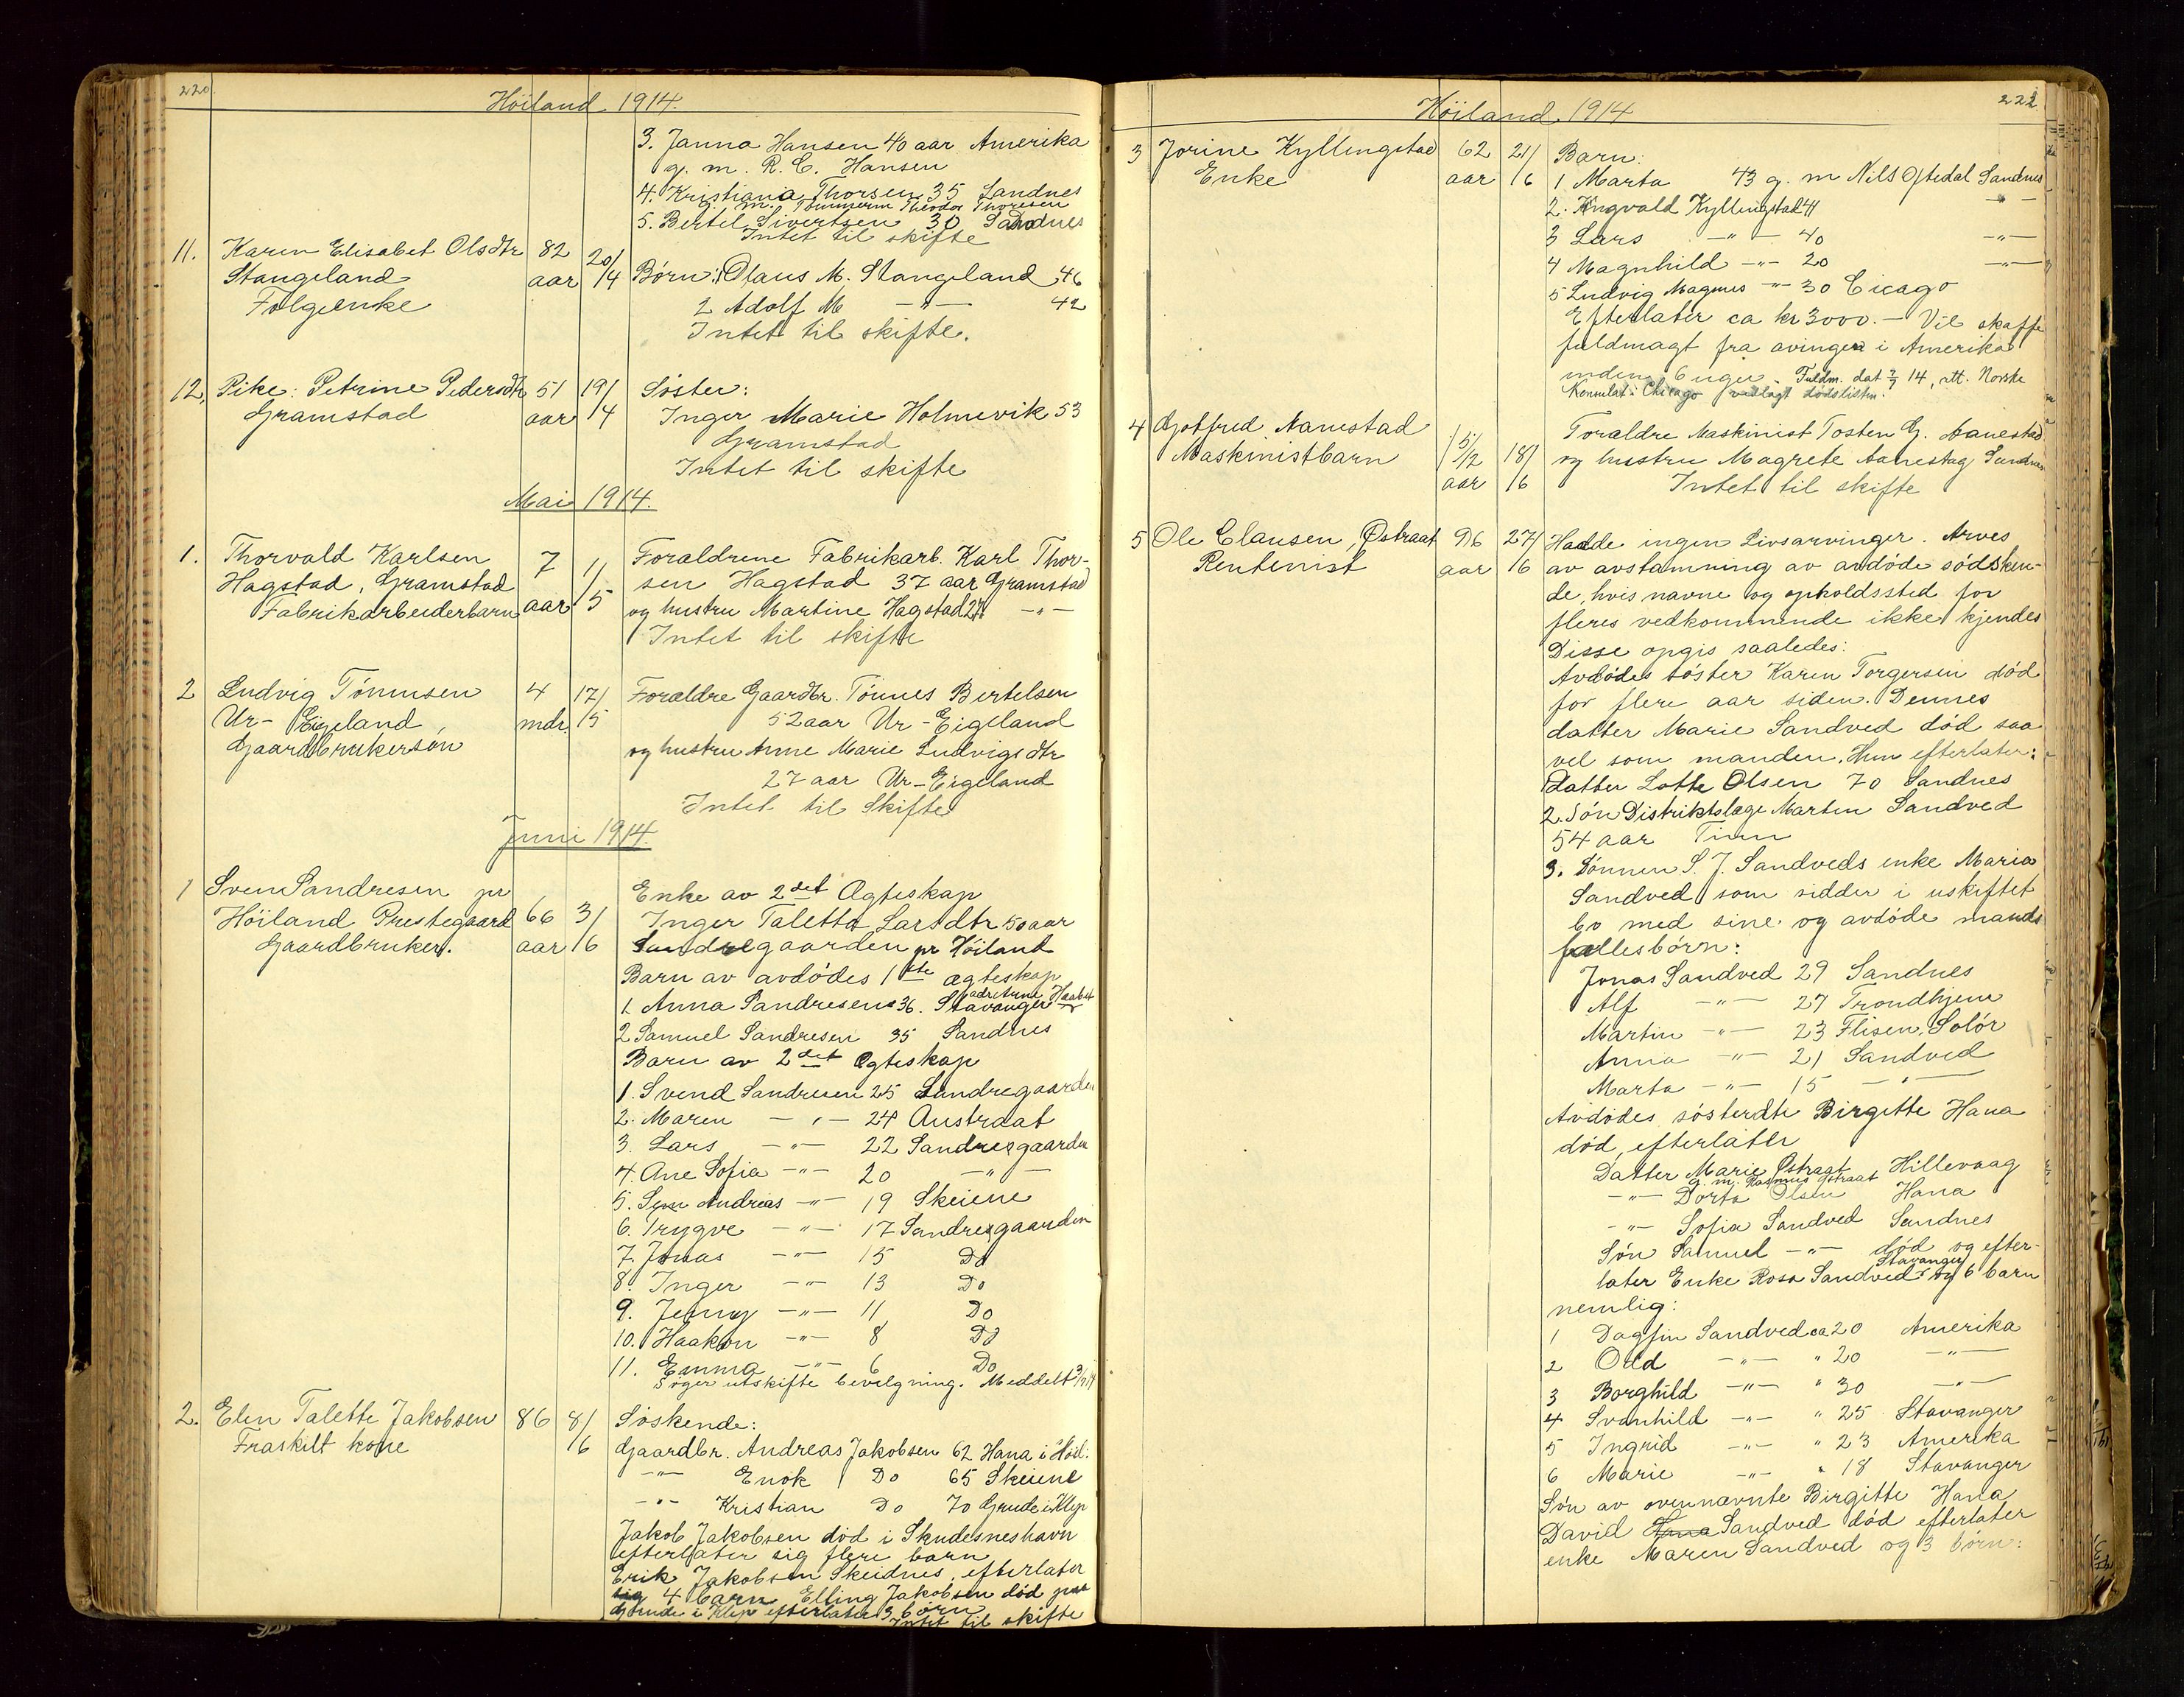 220
Höiland 1914.
3. Janna Hansen 40 aar Amerika
g. m. R. C. Hansen
4. Kristiana Thorsen 35 Sandnes
g. m. Tömmerm Theodor Thoresen
5. Bertel Sivertsen 30 Sandnes
Intet til skifte
11. Karen Elisabet Olsdtr 82 20/
Stangeland aar 4 Børn: 1 Olaus M. Stangeland 46
Folgeenke 2 Adolf M -"- 42
Intet til skifte.
12. Pike: Petrine Pedersdtr 51 19/ Søster:
Gramstad aar 4 Inger Marie Holmevik 53
Gramstad
Intet til skifte
Mai 1914.
1. Thorvald Karlsen 7 1/ Foraldrene Fabrikarb. Karl Thor-
Hagstad, Gramstad sen Hagstad 37 aar Gramstad
Fabrikarbeiderbarn aar 5 og hustru Martine Hagstad 27 -"-
Intet til skifte
2 Ludvig Tönnesen 4 17/ Foraldre Gaardbr. Tönnes Bertelsen
Ur- Eigeland, mdr. 5 52 aar Ur-Eigeland
Gaardbrukersön og hustru Anne Marie Ludvigsdtr
27 aar Ur-Eigeland
Intet til Skifte
Juni 1914.
1 Sven Sandresen pr Enke av 2det Ægteskap
Höiland Prestegaard 66 3/ Inger Taletta Larsdtr 50 aar
Gaardbruker. aar 6 Sandregaarden pr Höiland
Barn av avdödes 1ste ægteskap
1. Anna Sandresen 36. Stavanger
2 Samuel Sandresen 35 Sandnes
Barn av 2det Ægteskap
1. Svend Sandresen 25 Sandregaarden
2. Maren -"- 24 Austraat
3. Lars -"- 22 Sandresgaarden
4. Ane Sofia -"- 20 -"-
5. Sem Andreas -"- 19 Skeiene
6. Trygve -"- 17 Sandresgaarden
7. Jonas -"- 15 Do
8. Inger -"- 13 Do
9. Jenny -"- 11 Do
10. Haakon -"- 8 Do
11. Emma -"- 6 Do
Söger utskifte bevilgning. Meddelt
2. Elen Talette Jakobsen 86 8/ Söskende:
Fraskilt kone 6 Gaardbr. Andreas Jakobsen 62 Hana i Höil.
-"- Enok Do 65 Skeiene
-"- Kristian Do 70 Grude i Klep
Jakob Jakobsen död i Skudesneshavn
efterlater sig flere barn
Erik Jakobsen Skeidnes, efterlater
sig 4 barn Elling Jakobsen död paa
Grude i Klep efterlater 3 börn
Intet til skifte
222
Höiland 1914
3 Jorine Kyllingstad 62 21/ Barn:
Enke aar 6 1 Marta 43 g. m Nils Oftedal Sandnes
2. Ingvald Kyllingstad 41 -"-
3 Lars -"- 40 -"-
4 Magnhild -"- 20 -"-
5 Ludvig Magnus -"- 30 Cicago
Efterlater ca kr 3000.- Vil skaffe
fuldmagt fra avinger i Amerika
inden 6 uger. Fuldm. dat 14, att. Norske
Konsulat i Chicago vedlagt dödslisten.
4 Gotfred Aanestad Foraldre Maskinist Tosten G. Aanestad
Maskinistbarn 15/2 18/ og hustru Magrete Aanestag Sandnes
aar 6 Intet til skifte
5 Ole Clausen, Østraat 96 27/ Hadde ingen Livsarvinger. Arves
Rentenist aar 6 av avstamning av avdöde södsken-
de, hvis navne og opholdssted for
fleres vedkommende ikke kjendes
Disse opgis saaledes:
Avdödes söster Karen Torgersen död
for flere aar siden. Dennes
datter Marie Sandved död saa
vel som manden. Hun efterlater:
Datter Lotte Olsen 70 Sandnes
2. Sön Distriktslæge Martin Sandved
54 aar Tinn
3. Sönnen S. J. Sandveds enke Maria
Sandved som sidder i uskiftet
bo med sine og avdöde mands
fællesbörn:
Jonas Sandved 29 Sandnes
Alf -"- 27 Trondhjem
Martin -"- 23 Flisen, Solör
Anna -"- 21 Sandved
Marta -"- 15 -"-
Avdödes sösterdtr Birgitte Hana
död, efterlater
Datter Marie Østraat Hillevaag
g. m. Rasmus Østraat
-"- Dorta Olsen Hana
-"- Sofia Sandved Sandnes
Sön Samuel -"- död og efter-
later Enke Rosa Sandved Stavanger og 6 barn
nemlig:
1 Dagfin Sandved ca 20 Amerika
2 Odd -"- " 20 -"-
3 Borghild -"- " 30 -"-
4 Svanhild -"- " 25 Stavanger
5 Ingrid -"- " 23 Amerika
6 Marie -"- " 18 Stavanger
Sön av ovennævnte Birgitte Hana
David Hana Sandved död efterlater
enke Maren Sandved og 3 börn: